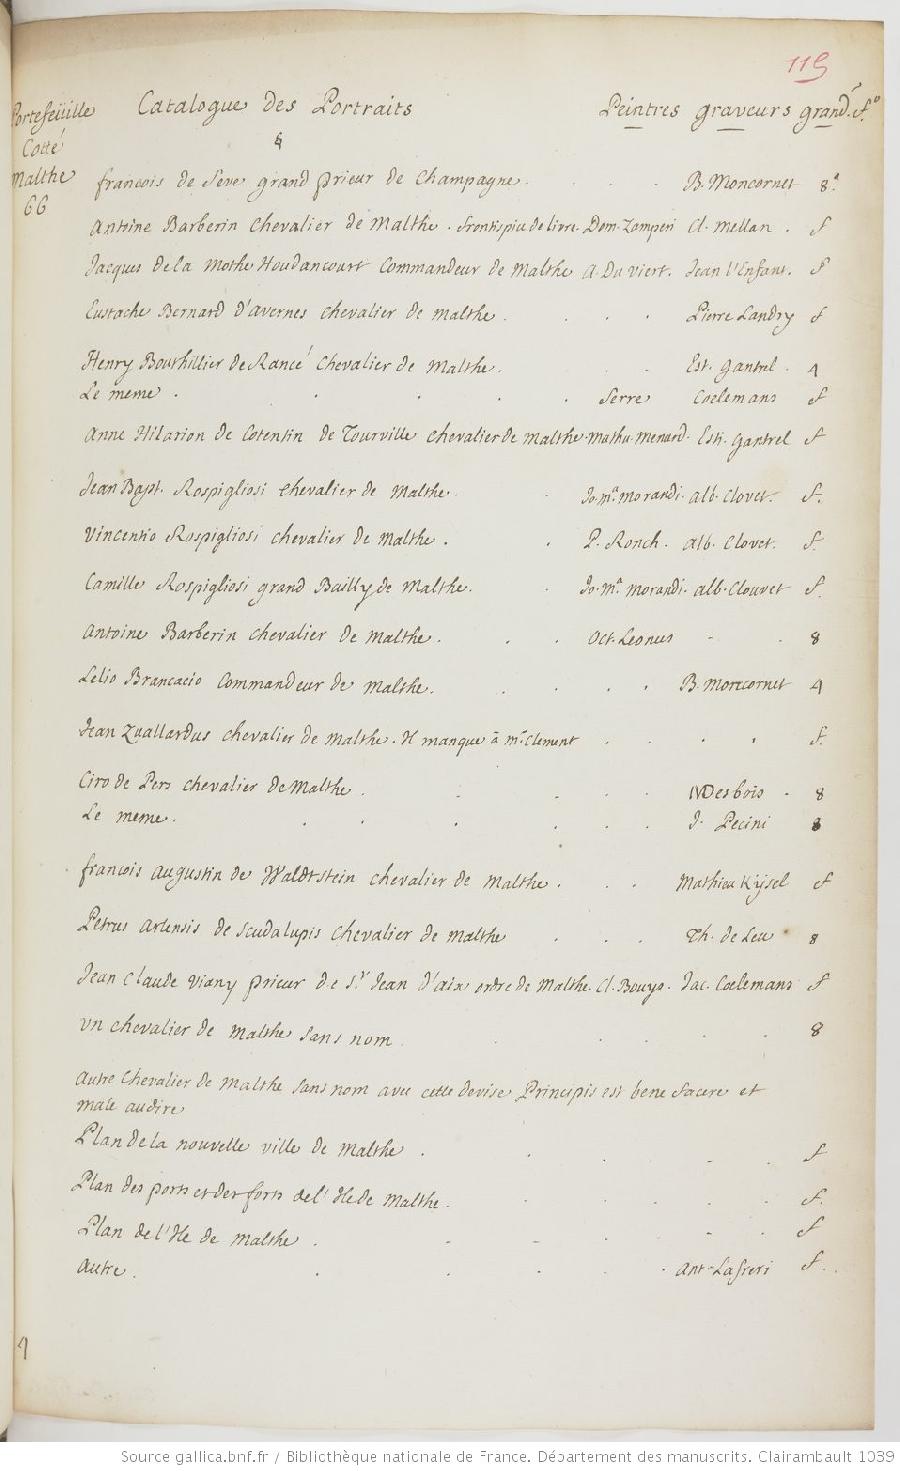 115
Portefeüille Catalogue des Portraits Peintres graveurs grandr. fo
Cotté §
Malthe
66
francois de Seve grand prieur de Champagne . . . B. Moncornet 8o.
Antoine Barberin Chevalier de Malthe . frontispice de livre . Dom. Zomperi Cl. Mellan . f
Jacques de la Mothe Houdancourt Commandeur de Malthe A. Du Viert. Jean l'Enfant. f
Eustache Bernard d'avernes chevalier de malthe . . . . Pierre Landry f
Henry Bouthillier de Rancé Chevalier de Malthe . . Est. Gantrel . 4
Le meme . . . . . Serre Coelemans f
Anne Hilarion de Cotentin de Tourville chevalier de Malthe . Mathu. Menard. Esti. Gantrel f
Jean Bapt. Rospigliosi chevalier de Malthe . . Jo. Ma. Morandi. alb. Clovet. f.
Vincentio Rospigliosi chevalier de Malthe . . P. Ronch. alb. Clovet. f.
Camille Rospigliosi grand Bailly de Malthe . . Jo. Ma. Morandi. alb. Clouvet f.
Antoine Barberin chevalier de malthe . . . Oct. Leonus - . 8
Lelio Brancacio Commandeur de malthe . . . . . B. Morccornet 4
Jean Zuallardus chevalier de malthe . Il manque à Mr. Clement . . . . f.
Ciro de Pers chevalier de Malthe . . . . Desbois . 8
Le meme . . . . . . . J. Pecini 8
francois augustin de Waldtstein chevalier de malthe . . . Mathieu Kijsel f
Petrus artensis de scudalupis chevalier de malthe . . . Th. de Leu 8
Jean Claude Viany prieur de St Jean d'aix ordre de Malthe . Cl. Bouys. Jac. Coelemans f
Un chevalier de Malthe sans nom . . . . 8
autre chevalier de Malthe sans nom avec cette devise Principis est bene facere et
male audire
Plan de la nouvelle ville de Malthe . . . . f
Plan des ports et des forts de l'Ile de Malthe . . . . f.
Plan de l'Ile de Malthe . . . . f
autre . . . . . Ant. Lafreri f.
Source gallica.bnf.fr / Bibliothèque nationale de France. Département des manuscrits. Clairambault 1039